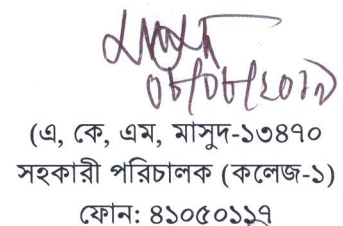 ০৮/০৮/২০১৯
(এ, কে, এম, মাসুদ-১৩৪৭০
সহকারী পরিচালক (কলেজ-১)
ফোন: ৪১০৫০১১৭